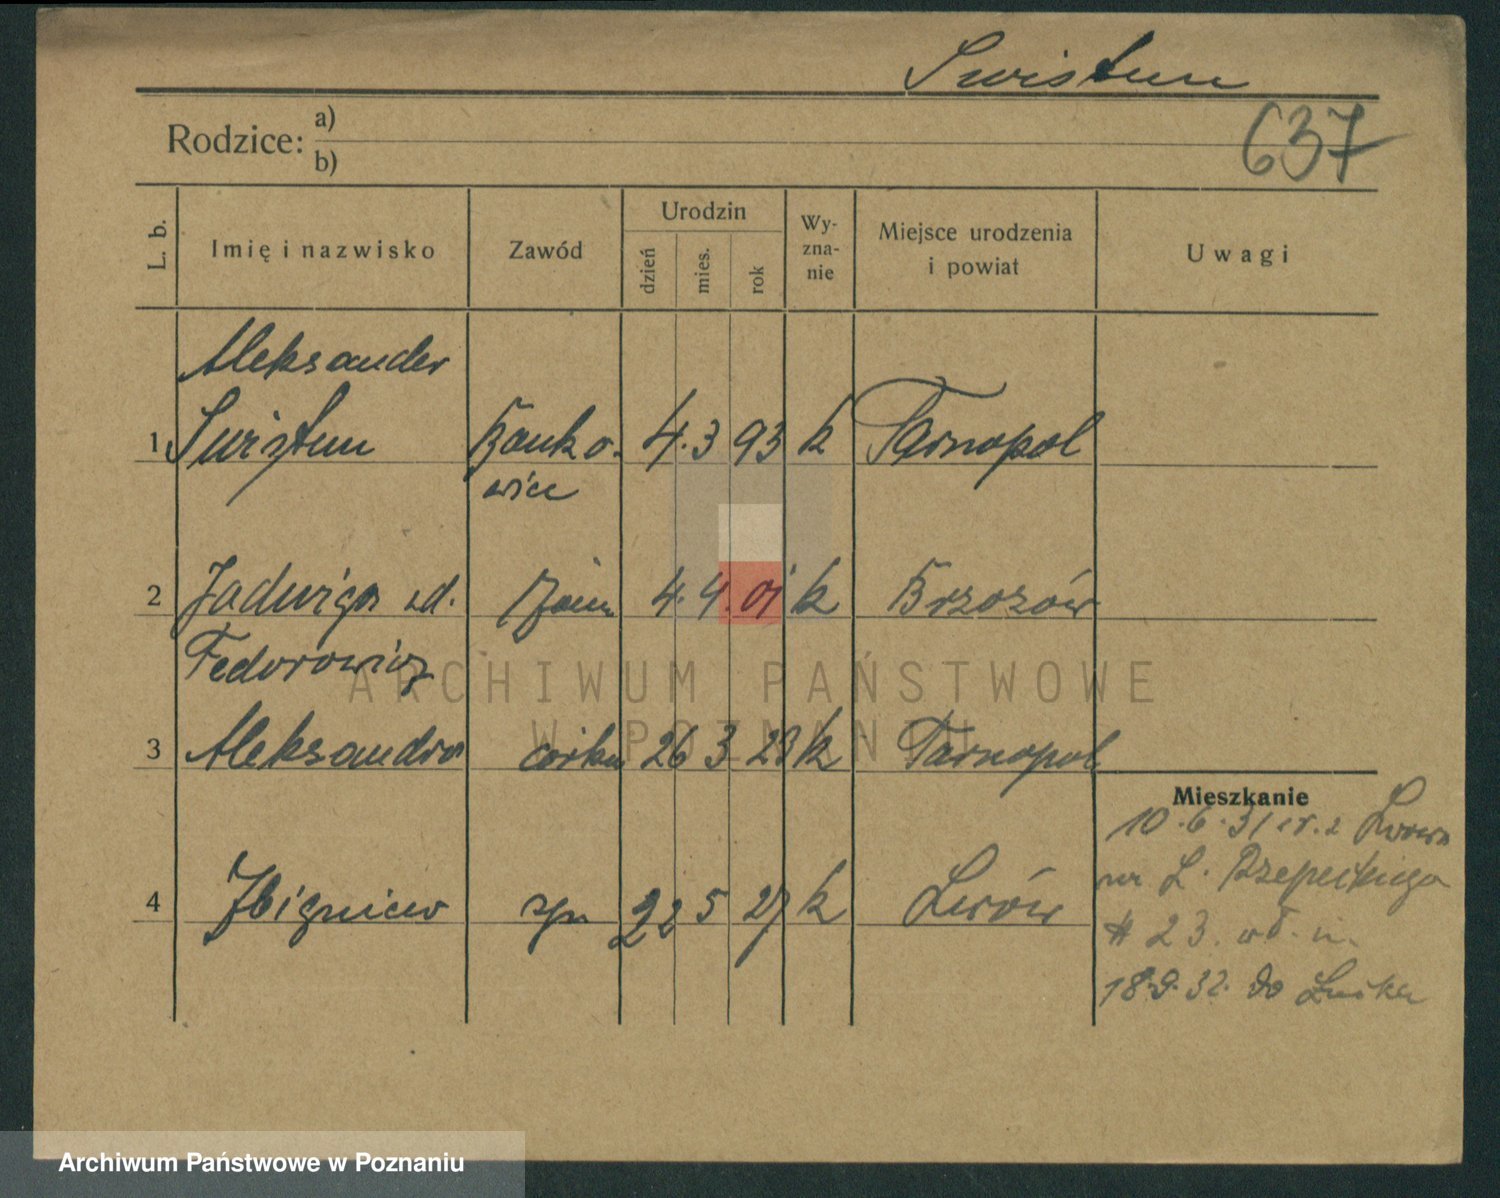 Swistun
637
Rodzice: a)
b)
L. b.
Imię i nazwisko
Zawód
Urodzin
dzień
mies.
rok
Wy-
zna-
nie
Miejsce urodzenia
i powiat
Uwagi
Aleksander
1 Swistun Banko- 4. 3 93 k Tarnopol
wiec
2 Jadwiga zd. 4. 4. 01 k Brzozów
Fedorowicz
3 Aleksandra córka 26 3 23 k Tarnopol
4 Zbigniew syn 22 5 27 k Lwów
Mieszkanie
10.6.31 z Lwowa
L. Rzepeckiego
# 23.
18.9.32. do Łucka
ARCHIWUM PAŃSTWOWE
W POZNANIU
Archiwum Państwowe w Poznaniu